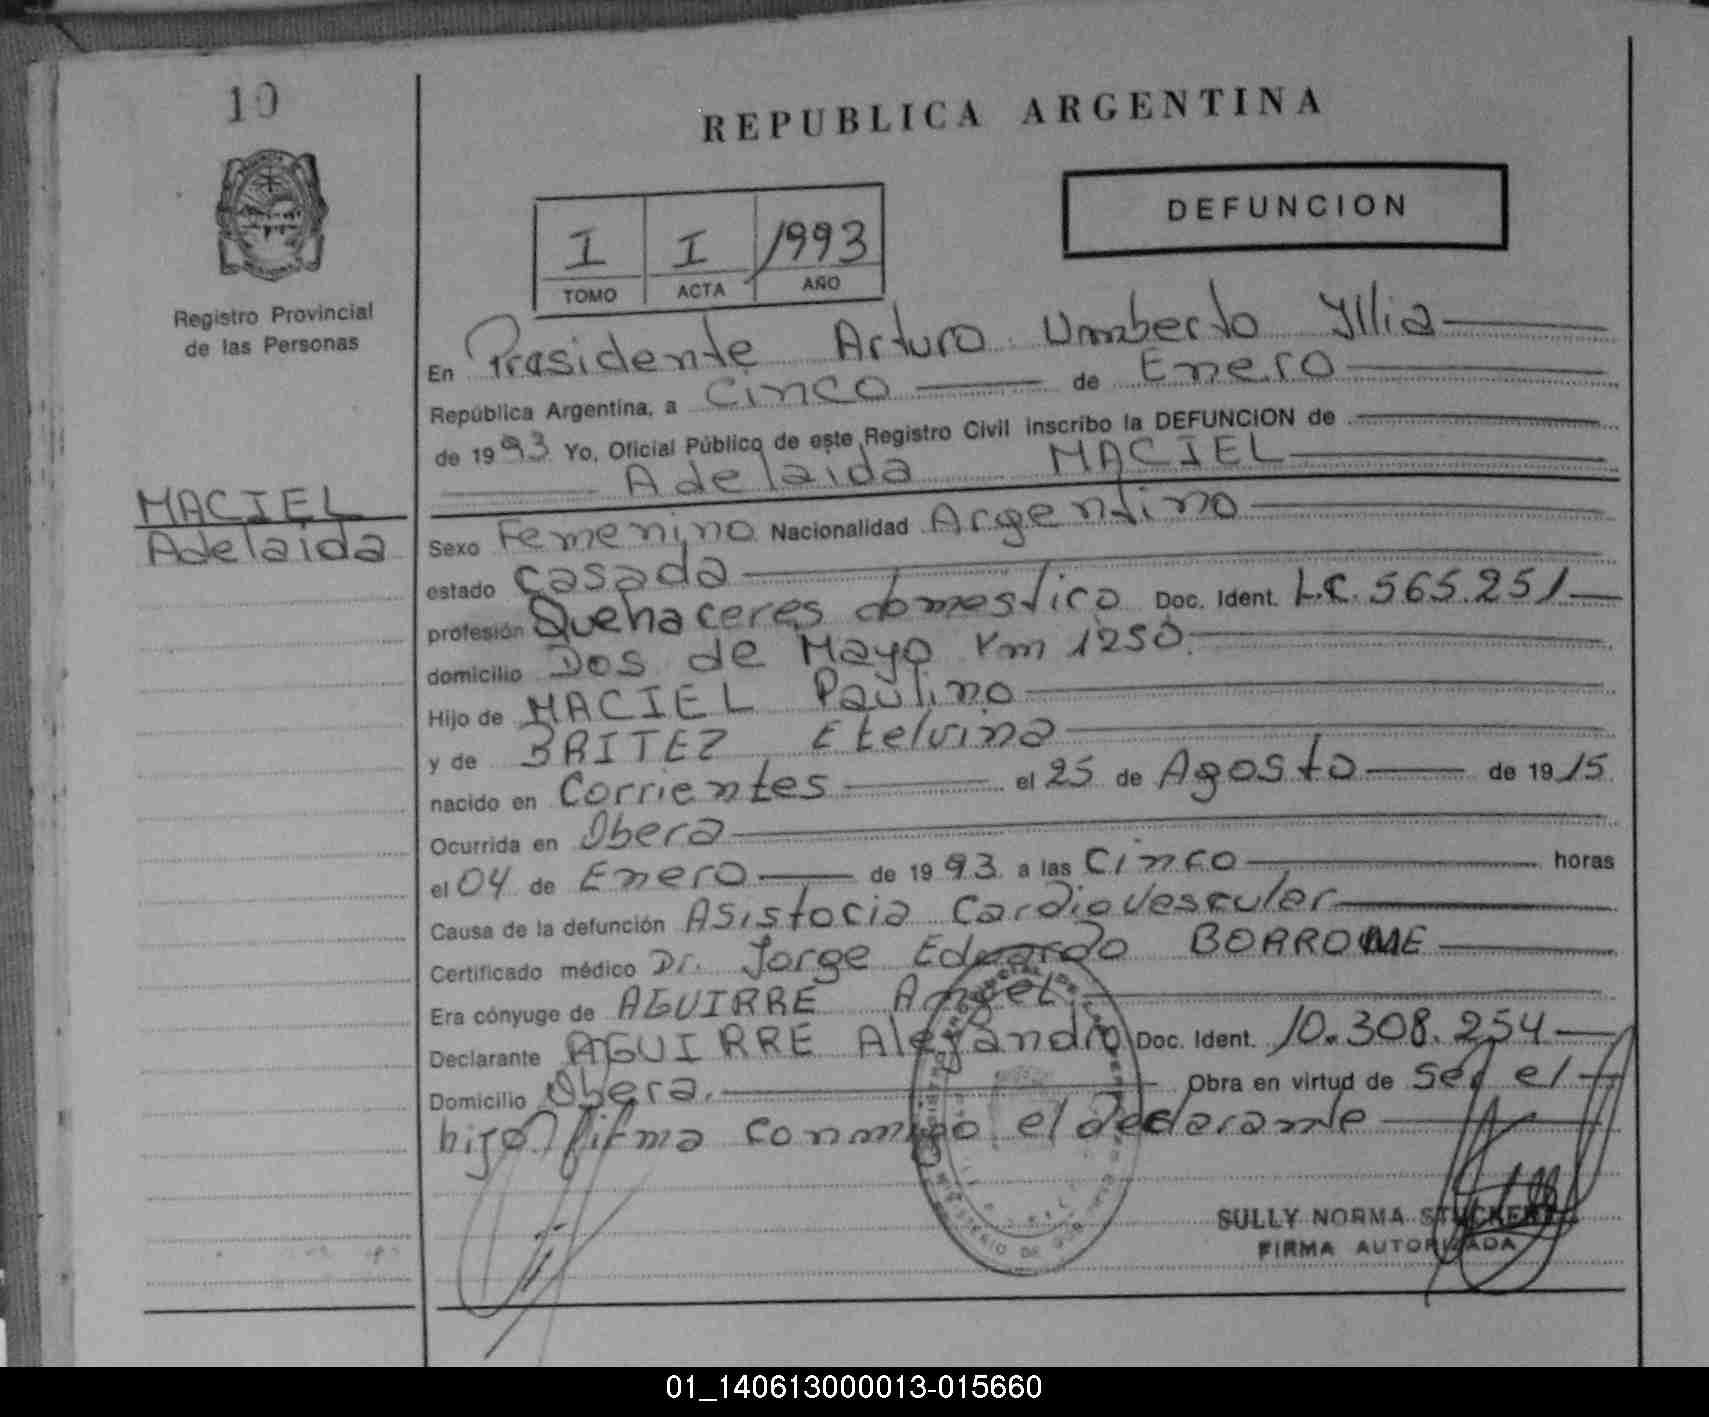 10
Registro Provincial
de las Personas
MACIEL
Adelaida
REPUBLICA ARGENTINA
DEFUNCION
I I 1993
TOMO ACTA AÑO
En Presidente Arturo Umberto Yllia
República Argentina, a Cinco de Enero
de 1993 Yo, Oficial Público de este Registro Civil inscribo la DEFUNCION de
Adelaida MACIEL
Sexo Femenino Nacionalidad Argentino
estado Casada
profesión Quehaceres domestico Doc. Ident. L.C. 565.251
domicilio Dos de Mayo Km 1250.
Hijo de MACIEL Paulino
y de BRITEZ Etelvina
nacido en Corrientes el 25 de Agosto de 1915
Ocurrida en Obera
el 04 de Enero de 1993 a las Cinco horas
Causa de la defunción Asistocia Cardiovescular
Certificado médico Dr. Jorge Eduardo BORROME
Era cónyuge de AGUIRRE Angel
Declarante AGUIRRE Alejandro Doc. Ident. 10.308.254
Domicilio Obera. Obra en virtud de Ser el
hijo. firma conmigo el declarante
SULLY NORMA STUCKERT
FIRMA AUTORIZADA
01_140613000013-015660